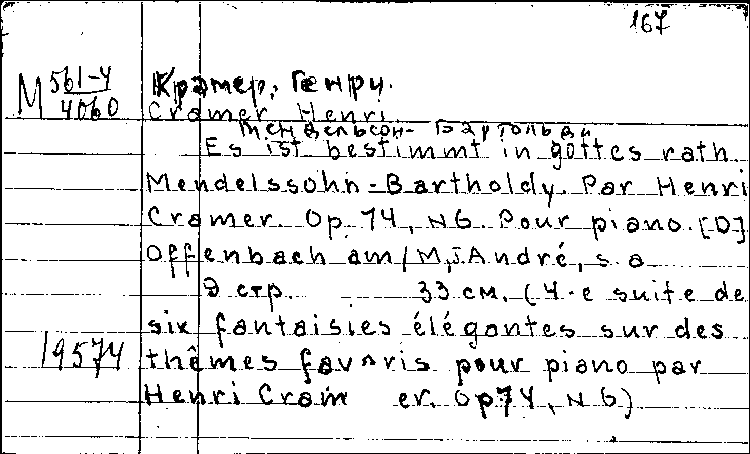 167
М 561-4/4060 Крамер, Генри.
Cramer Henri
Мендельсон-Бартольди
Es ist bestimmt in gottes rath
Mendelssohn-Bartholdy. Par Henri
Cramer. Op. 74, N6. Pour piano. [D]
Offenbach am/M, J. André, s. a
9 стр. 33 см. (4-e suite de
six fantaisies élégontes sur des
19574 thêmes favoris pour piano par
Henri Cram er. Op 74, N 6)